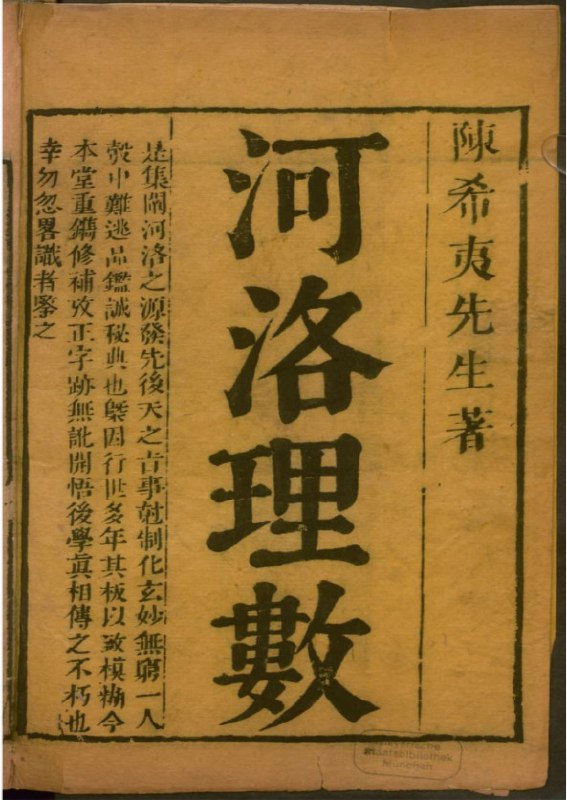 陳希夷先生著
河洛理數
是集闡河洛之源發先後天之古事尅制化玄妙無窮一人
彀中難逃品鑑誠秘典也槩因行世多年其板以致模糊今
本堂重鐫修補攷正字跡無訛開悟後學眞相傳之不朽也
幸勿忽畧識者鍳之
Bayerische
Staatsbibliothek
München